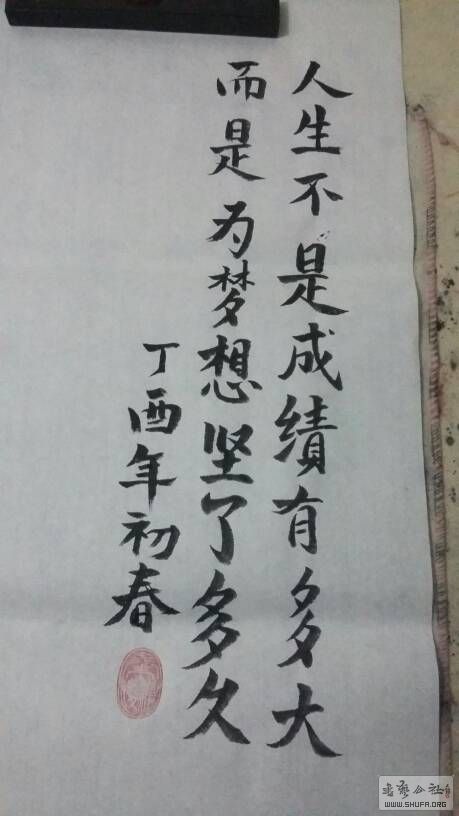 人生不是成绩有多大
而是为梦想坚了多久
丁酉年初春
WWW.SHUFA.ORG